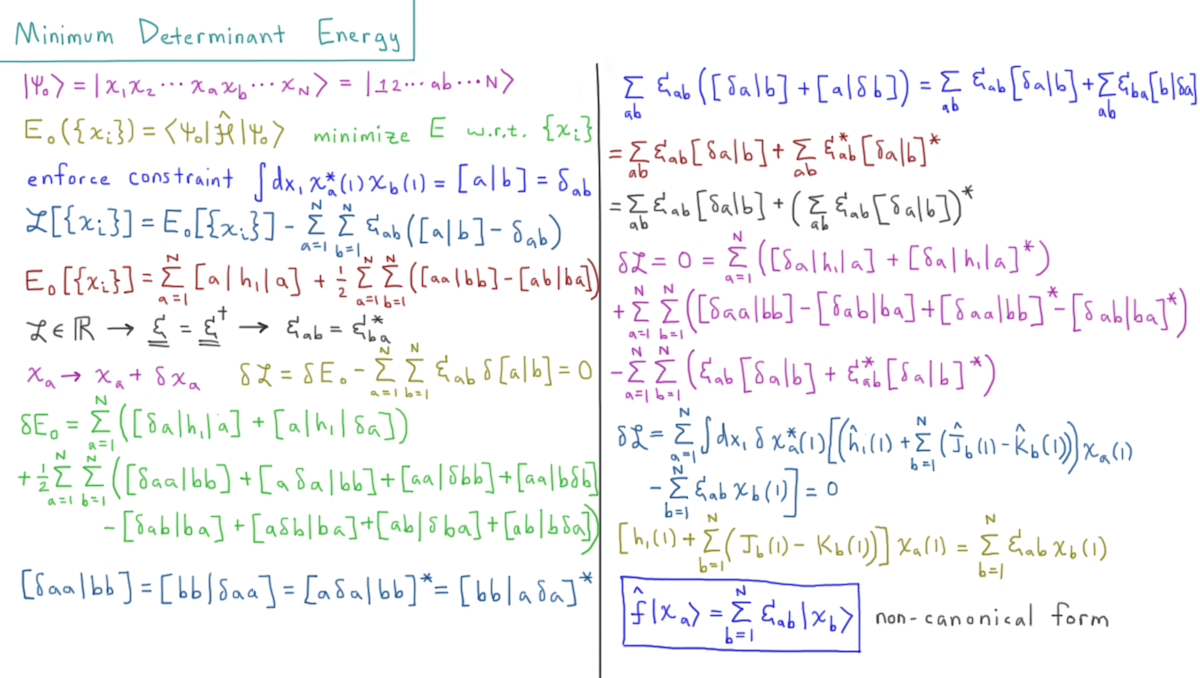 Minimum Determinant Energy
|Ψ₀⟩ = |χ₁χ₂ ⋯ χₐχ_b ⋯ χ_N⟩ = |12⋯ab⋯N⟩
E₀({χᵢ}) = ⟨Ψ₀|Ĥ|Ψ₀⟩ minimize E w.r.t. {χᵢ}
enforce constraint ∫dx₁ χₐ*(1) χ_b(1) = [a|b] = δ_ab
ℒ[{χᵢ}] = E₀[{χᵢ}] − Σ_{a=1}^{N} Σ_{b=1}^{N} ε_ab([a|b] − δ_ab)
E₀[{χᵢ}] = Σ_{a=1}^{N} [a|h₁|a] + ½ Σ_{a=1}^{N} Σ_{b=1}^{N} ([aa|bb] − [ab|ba])
ℒ ∈ ℝ → ε = ε† → ε_ab = ε_ba*
χₐ → χₐ + δχₐ δℒ = δE₀ − Σ_{a=1}^{N} Σ_{b=1}^{N} ε_ab δ[a|b] = 0
δE₀ = Σ_{a=1}^{N} ([δa|h₁|a] + [a|h₁|δa])
+ ½ Σ_{a=1}^{N} Σ_{b=1}^{N} ([δaa|bb] + [aδa|bb] + [aa|δbb] + [aa|bδb]
− [δab|ba] + [aδb|ba] + [ab|δba] + [ab|bδa])
[δaa|bb] = [bb|δaa] = [aδa|bb]* = [bb|aδa]*
Σ_{ab} ε_ab([δa|b] + [a|δb]) = Σ_{ab} ε_ab[δa|b] + Σ_{ab} ε_ba[b|δa]
= Σ_{ab} ε_ab[δa|b] + Σ_{ab} ε_ab*[δa|b]*
= Σ_{ab} ε_ab[δa|b] + (Σ_{ab} ε_ab[δa|b])*
δℒ = 0 = Σ_{a=1}^{N} ([δa|h₁|a] + [δa|h₁|a]*)
+ Σ_{a=1}^{N} Σ_{b=1}^{N} ([δaa|bb] − [δab|ba] + [δaa|bb]* − [δab|ba]*)
− Σ_{a=1}^{N} Σ_{b=1}^{N} (ε_ab[δa|b] + ε_ab*[δa|b]*)
δℒ = Σ_{a=1}^{N} ∫dx₁ δχₐ*(1)[(ĥ₁(1) + Σ_{b=1}^{N} (Ĵ_b(1) − K̂_b(1)))χₐ(1)
− Σ_{b=1}^{N} ε_ab χ_b(1)] = 0
[h₁(1) + Σ_{b=1}^{N} (J_b(1) − K_b(1))] χₐ(1) = Σ_{b=1}^{N} ε_ab χ_b(1)
f̂|χₐ⟩ = Σ_{b=1}^{N} ε_ab|χ_b⟩ non-canonical form